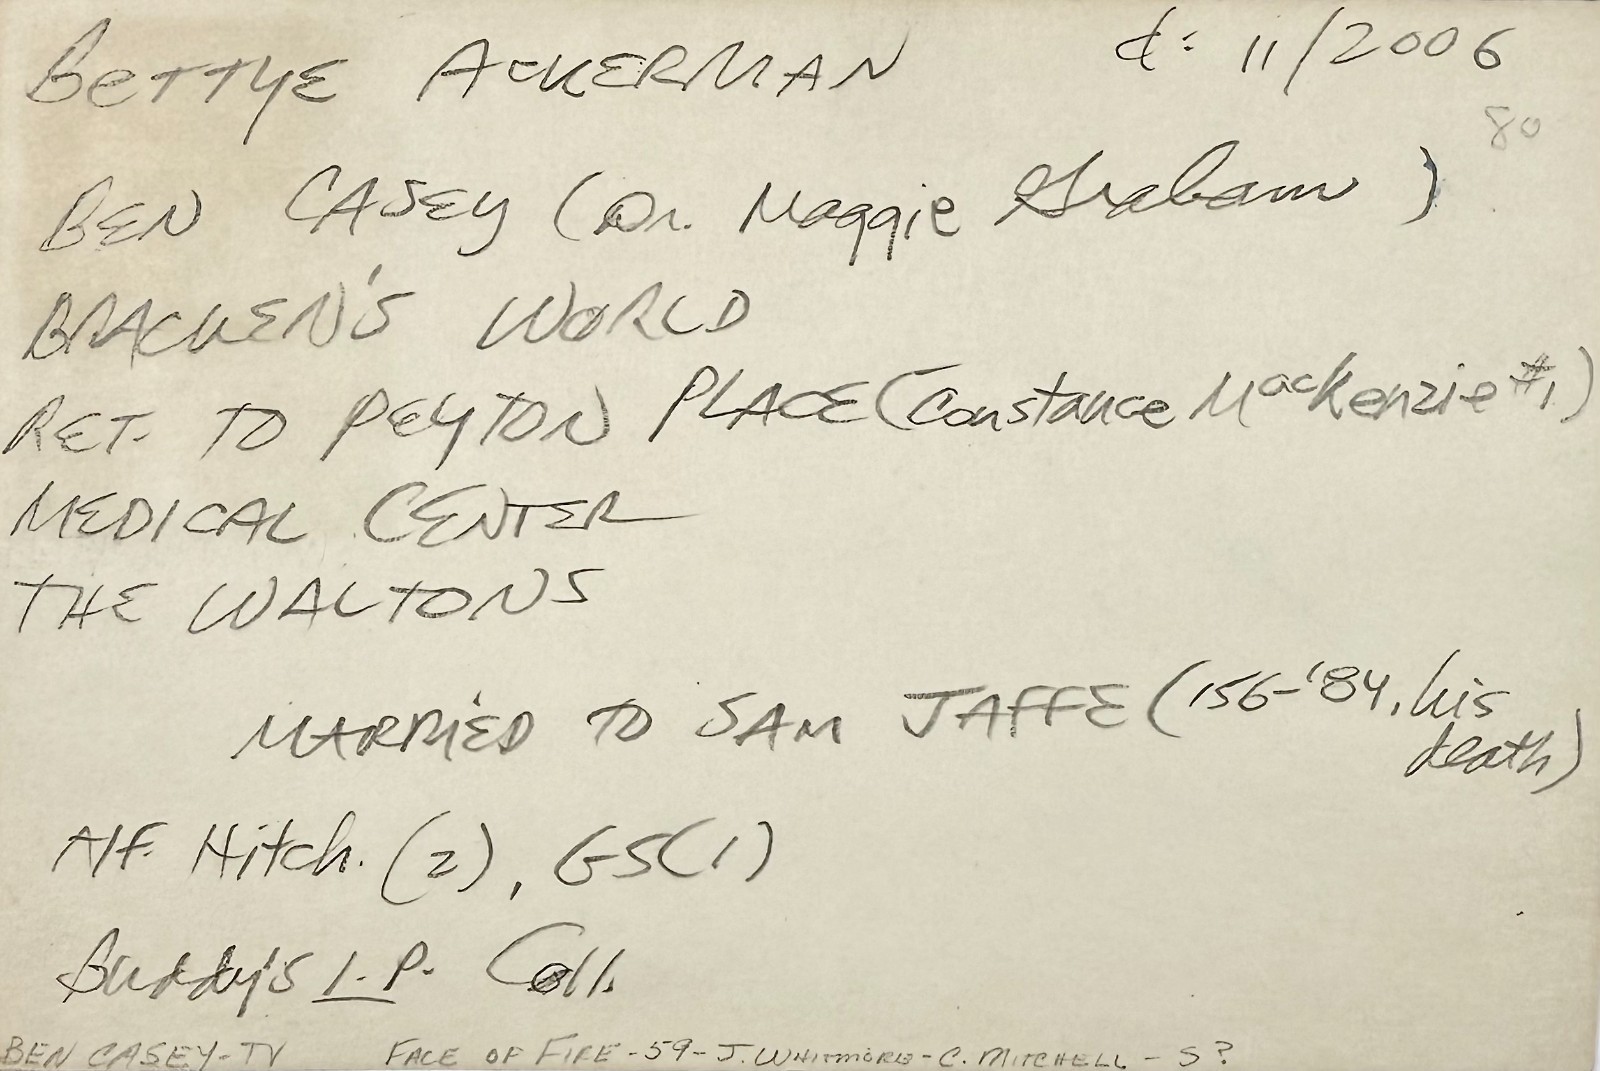 BETTYE ACKERMAN d: 11/2006
80
BEN CASEY (Dr. Maggie Graham)
BRACKEN'S WORLD
RET. TO PEYTON PLACE (Constance MacKenzie #1)
MEDICAL CENTER
THE WALTONS
MARRIED TO SAM JAFFE ('56-'84, his
death)
Alf. Hitch. (2), GS(1)
Buddy's I.P. Coll.
BEN CASEY-TV FACE OF FIRE-59-J. WHITMORE-C. MITCHELL-S?